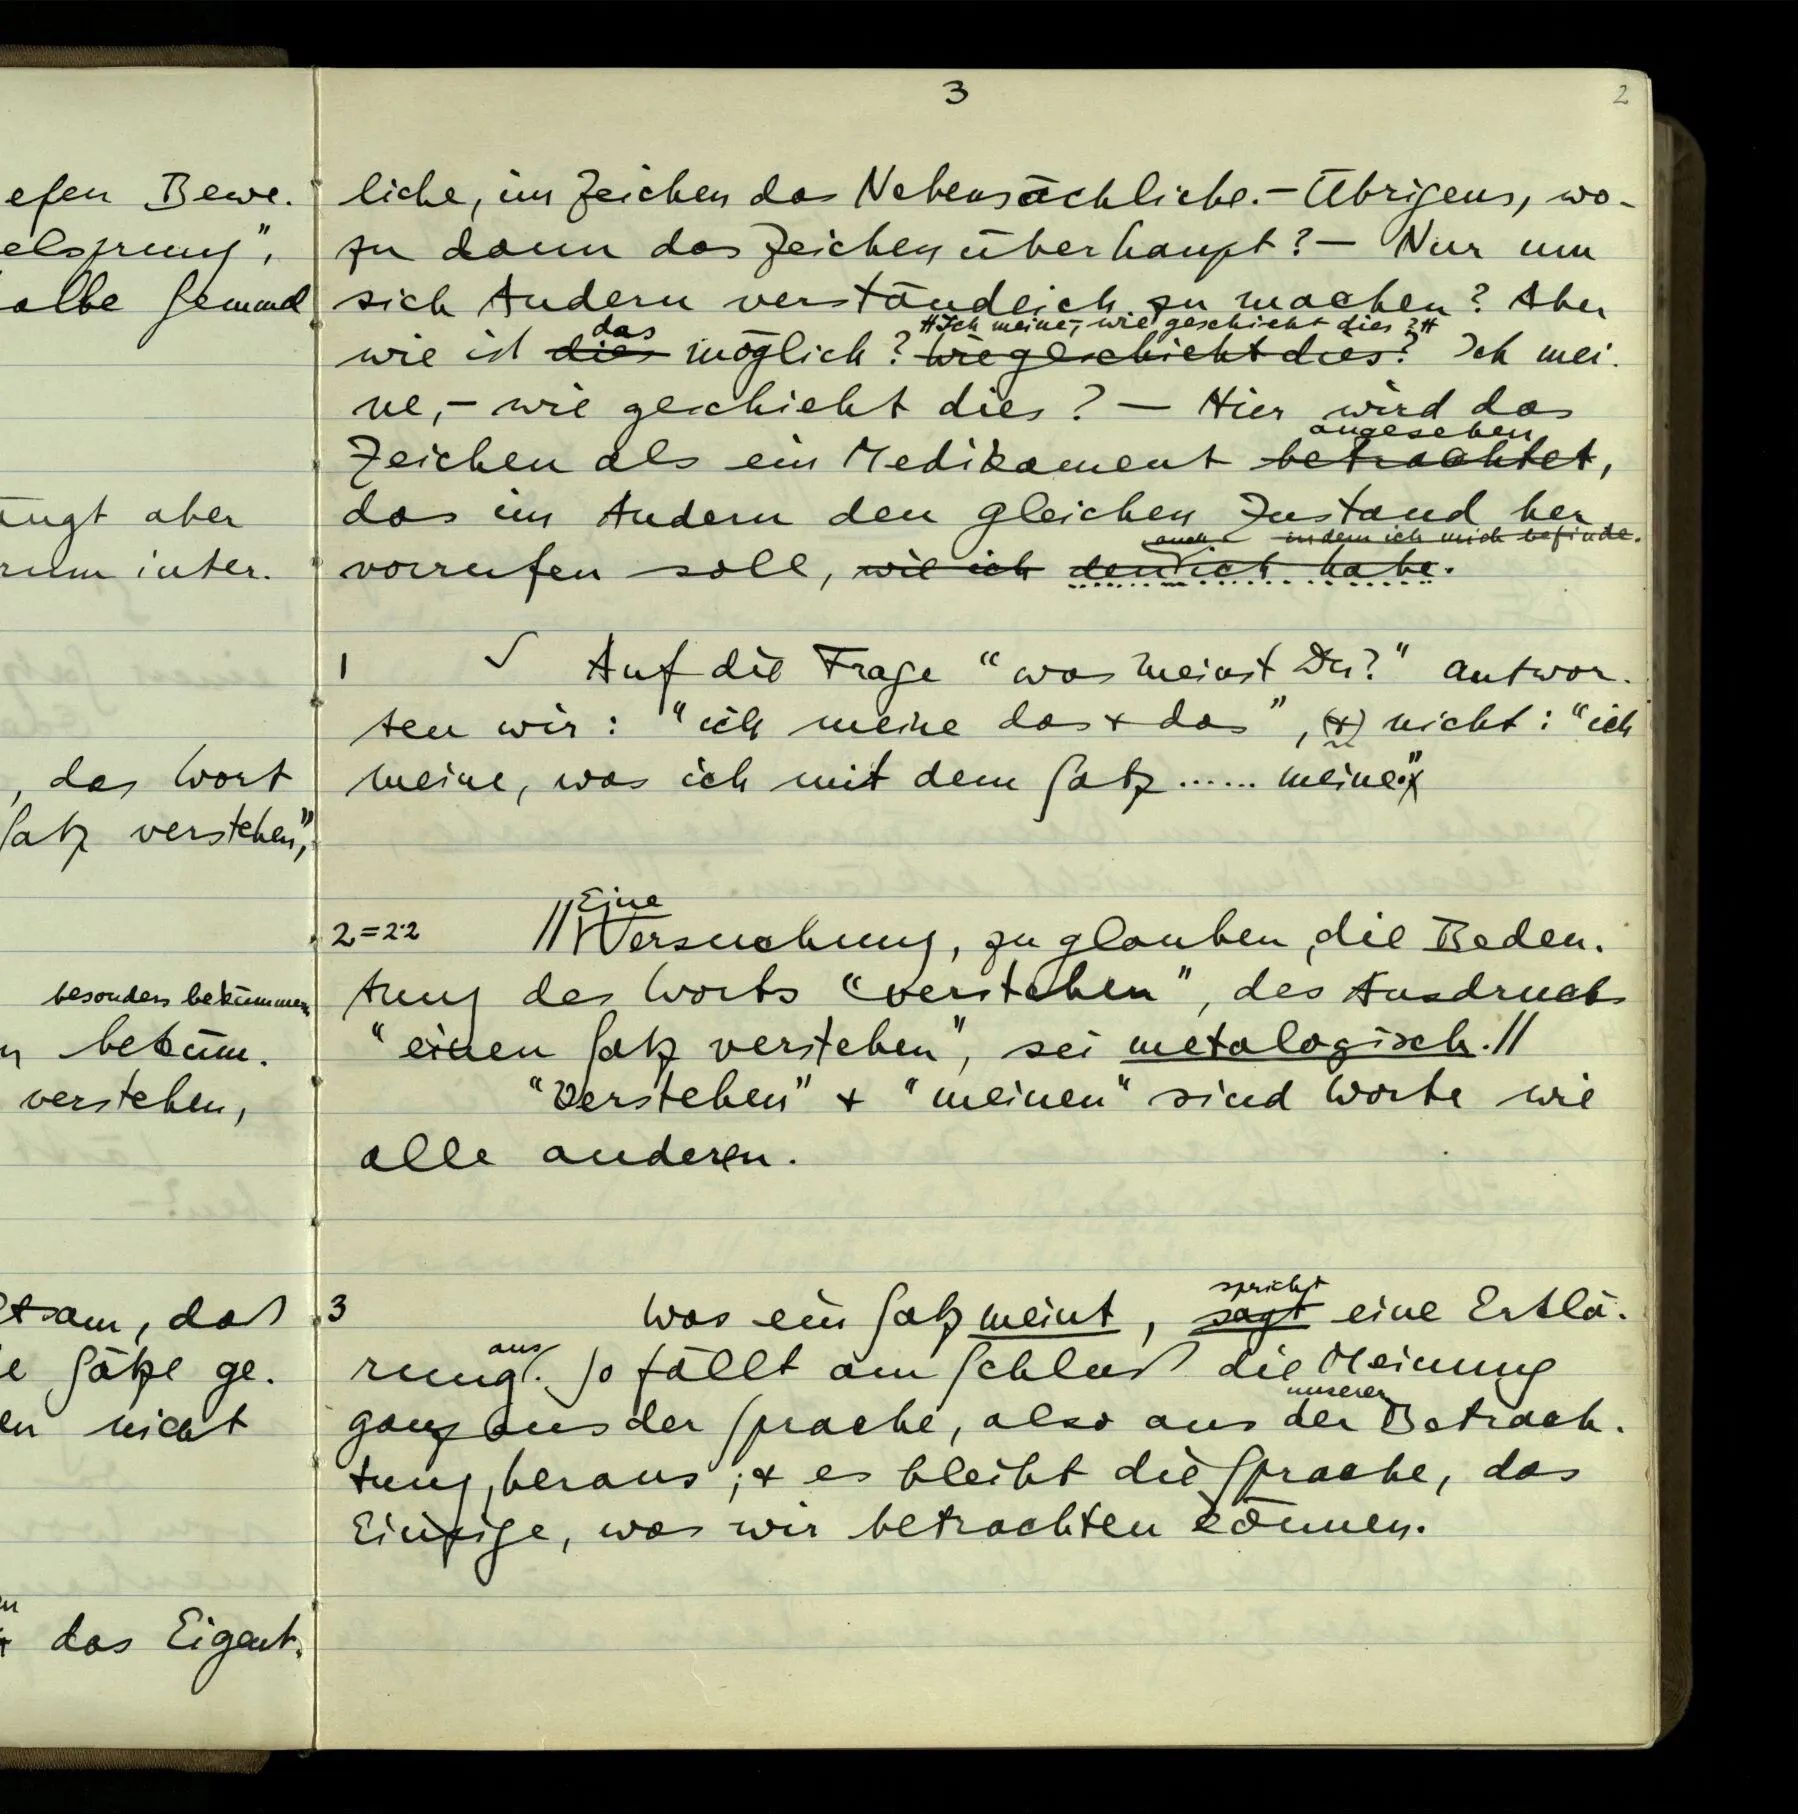 efen Bewe-
elsprung",
olbe Jemand
ängt aber
rum inter-
, das Wort
Satz verstehen",
besonders bekümmern
beküm-
verstehen,
tsam, daß
e Sätze ge-
en nicht
das Eigent-
3
2
liche, im Zeichen das Nebensächliche. – Übrigens, wo-
zu dann das Zeichen überhaupt? – Nur um
sich Andern verständlich zu machen? Aber
das // Ich meine, – wie geschieht dies? //
wie ist dies möglich? Wie geschieht dies? Ich mei-
ne, – wie geschieht dies? – Hier wird das
angesehen
Zeichen als ein Medikament betrachtet,
das im Andern den gleichen Zustand her
auch in dem ich mich befinde.
vorrufen soll, wie ich den ich habe.
1 ✓ Auf die Frage "was meinst Du?" antwor-
ten wir: "ich meine das + das", (+) nicht: "ich
meine, was ich mit dem Satz ...... meine."
Eine
2=22 // Versuchung, zu glauben, die Bedeu-
tung des Worts "verstehen", des Ausdrucks
"einen Satz verstehen", sei metalogisch. //
"Verstehen" + "meinen" sind Worte wie
alle anderen.
spricht
3 Was ein Satz meint, sagt eine Erklä-
aus
rung. So fällt am Schluß die Meinung
unserer
ganz aus der Sprache, also aus der Betrach-
tung, heraus; + es bleibt die Sprache, das
Einzige, was wir betrachten können.